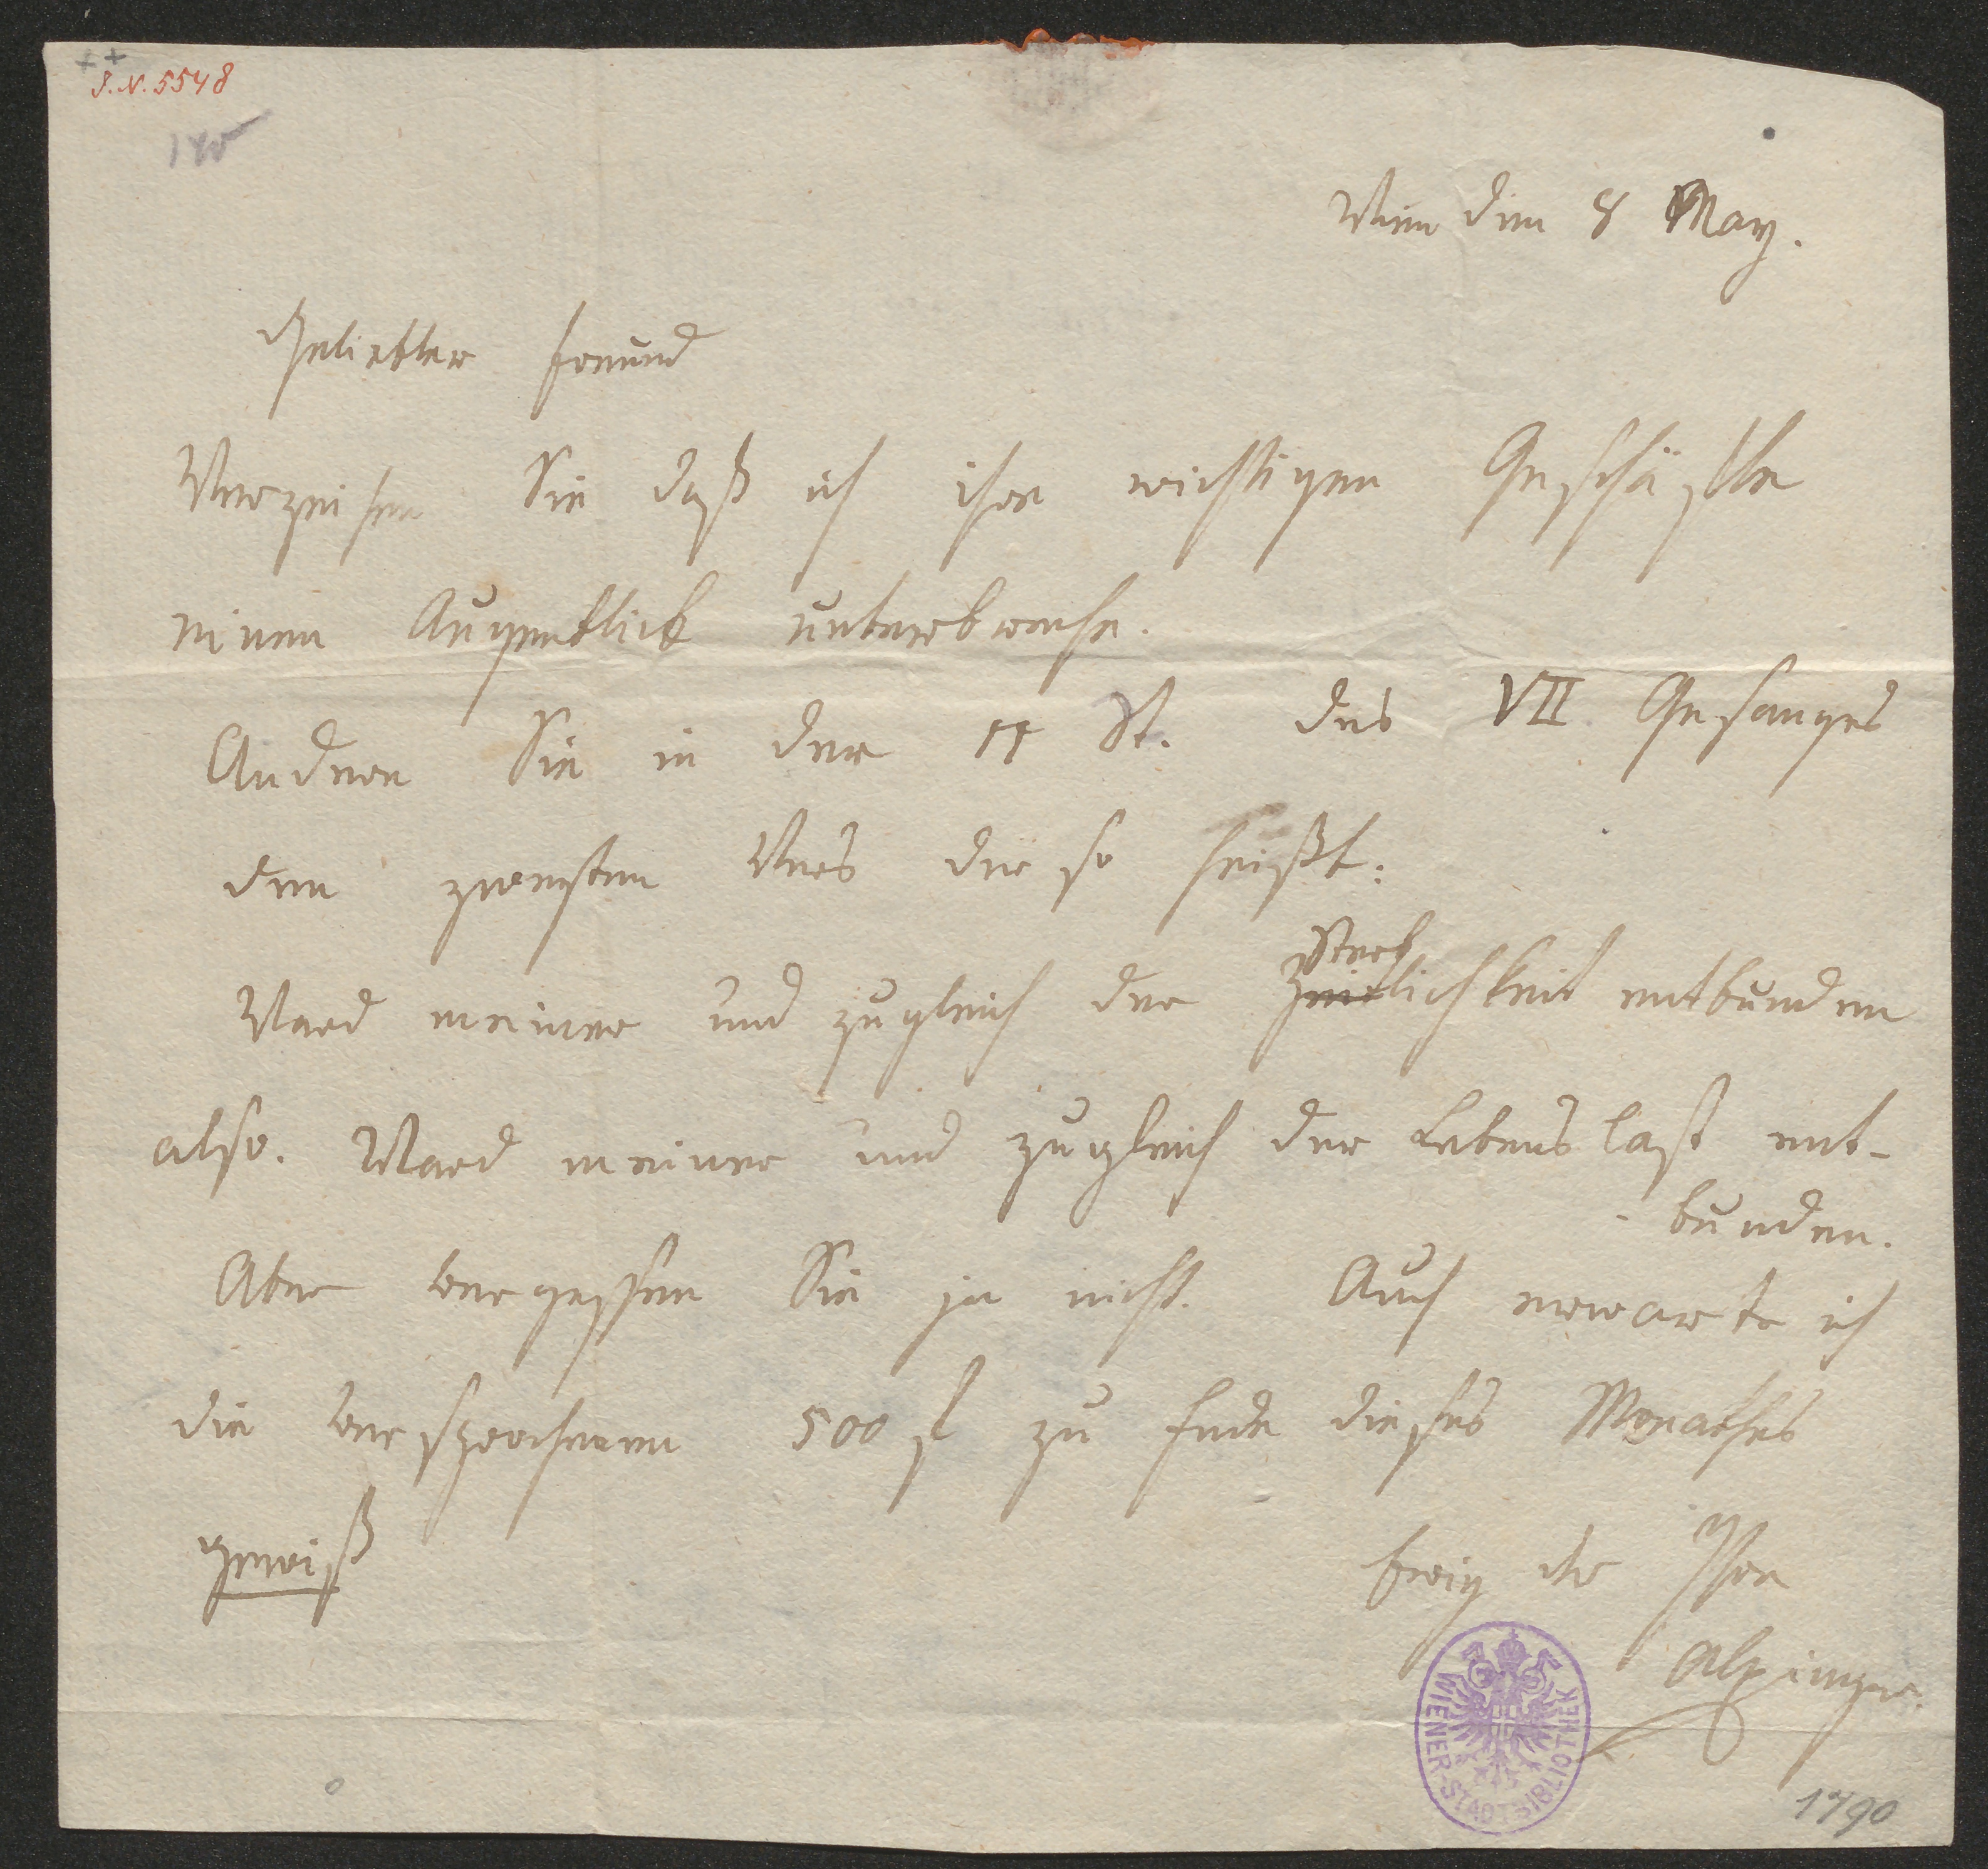 J.N. 5548
180
Wien den 8 May.
Geliebter Freund
Verzeihen Sie daß ich ihre wichtigen Geschäfte
einen Augenblick unterbreche.
Andern Sie in der 11 St. des VII. Gesanges
den zweyten Vers der so heißt:
Sterb
Ward meiner und zugleich der Zeitlichkeit entbunden
also. Ward meiner und zugleich der Lebenslast ent-
- bunden.
Aber vergessen Sie ja nicht. Auch erwarte ich
die versprochenen 500 f zu Ende dieses Monathes
gewiß
Ewig der Ihre
Alxinger.
WIENER-STADTBIBLIOTHEK
1790